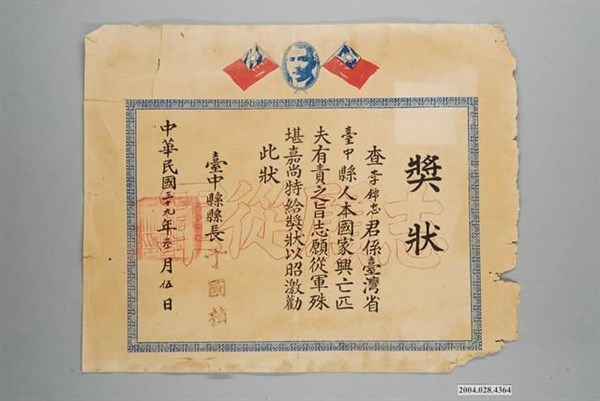 獎狀
查李錦忠君係臺灣省
臺中縣人本國家興亡匹
夫有責之旨志願從軍殊
堪嘉尚特給獎狀以昭激勸
此狀
臺中縣縣長于國楨
中華民國三十九年叁月伍日
志願從軍
2004.028.4364